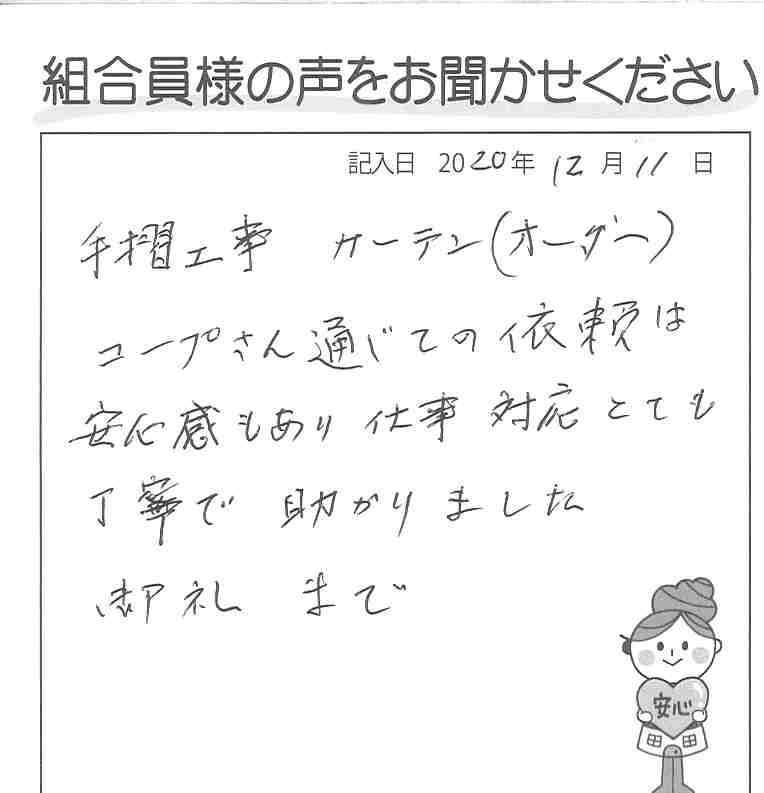 組合員様の声をお聞かせください
記入日 2020年 12月11日
手摺工事 カーテン(オーダー)
コープさん通じての依頼は
安心感もあり 仕事 対応 とても
丁寧で 助かりました
御礼 まで
安心